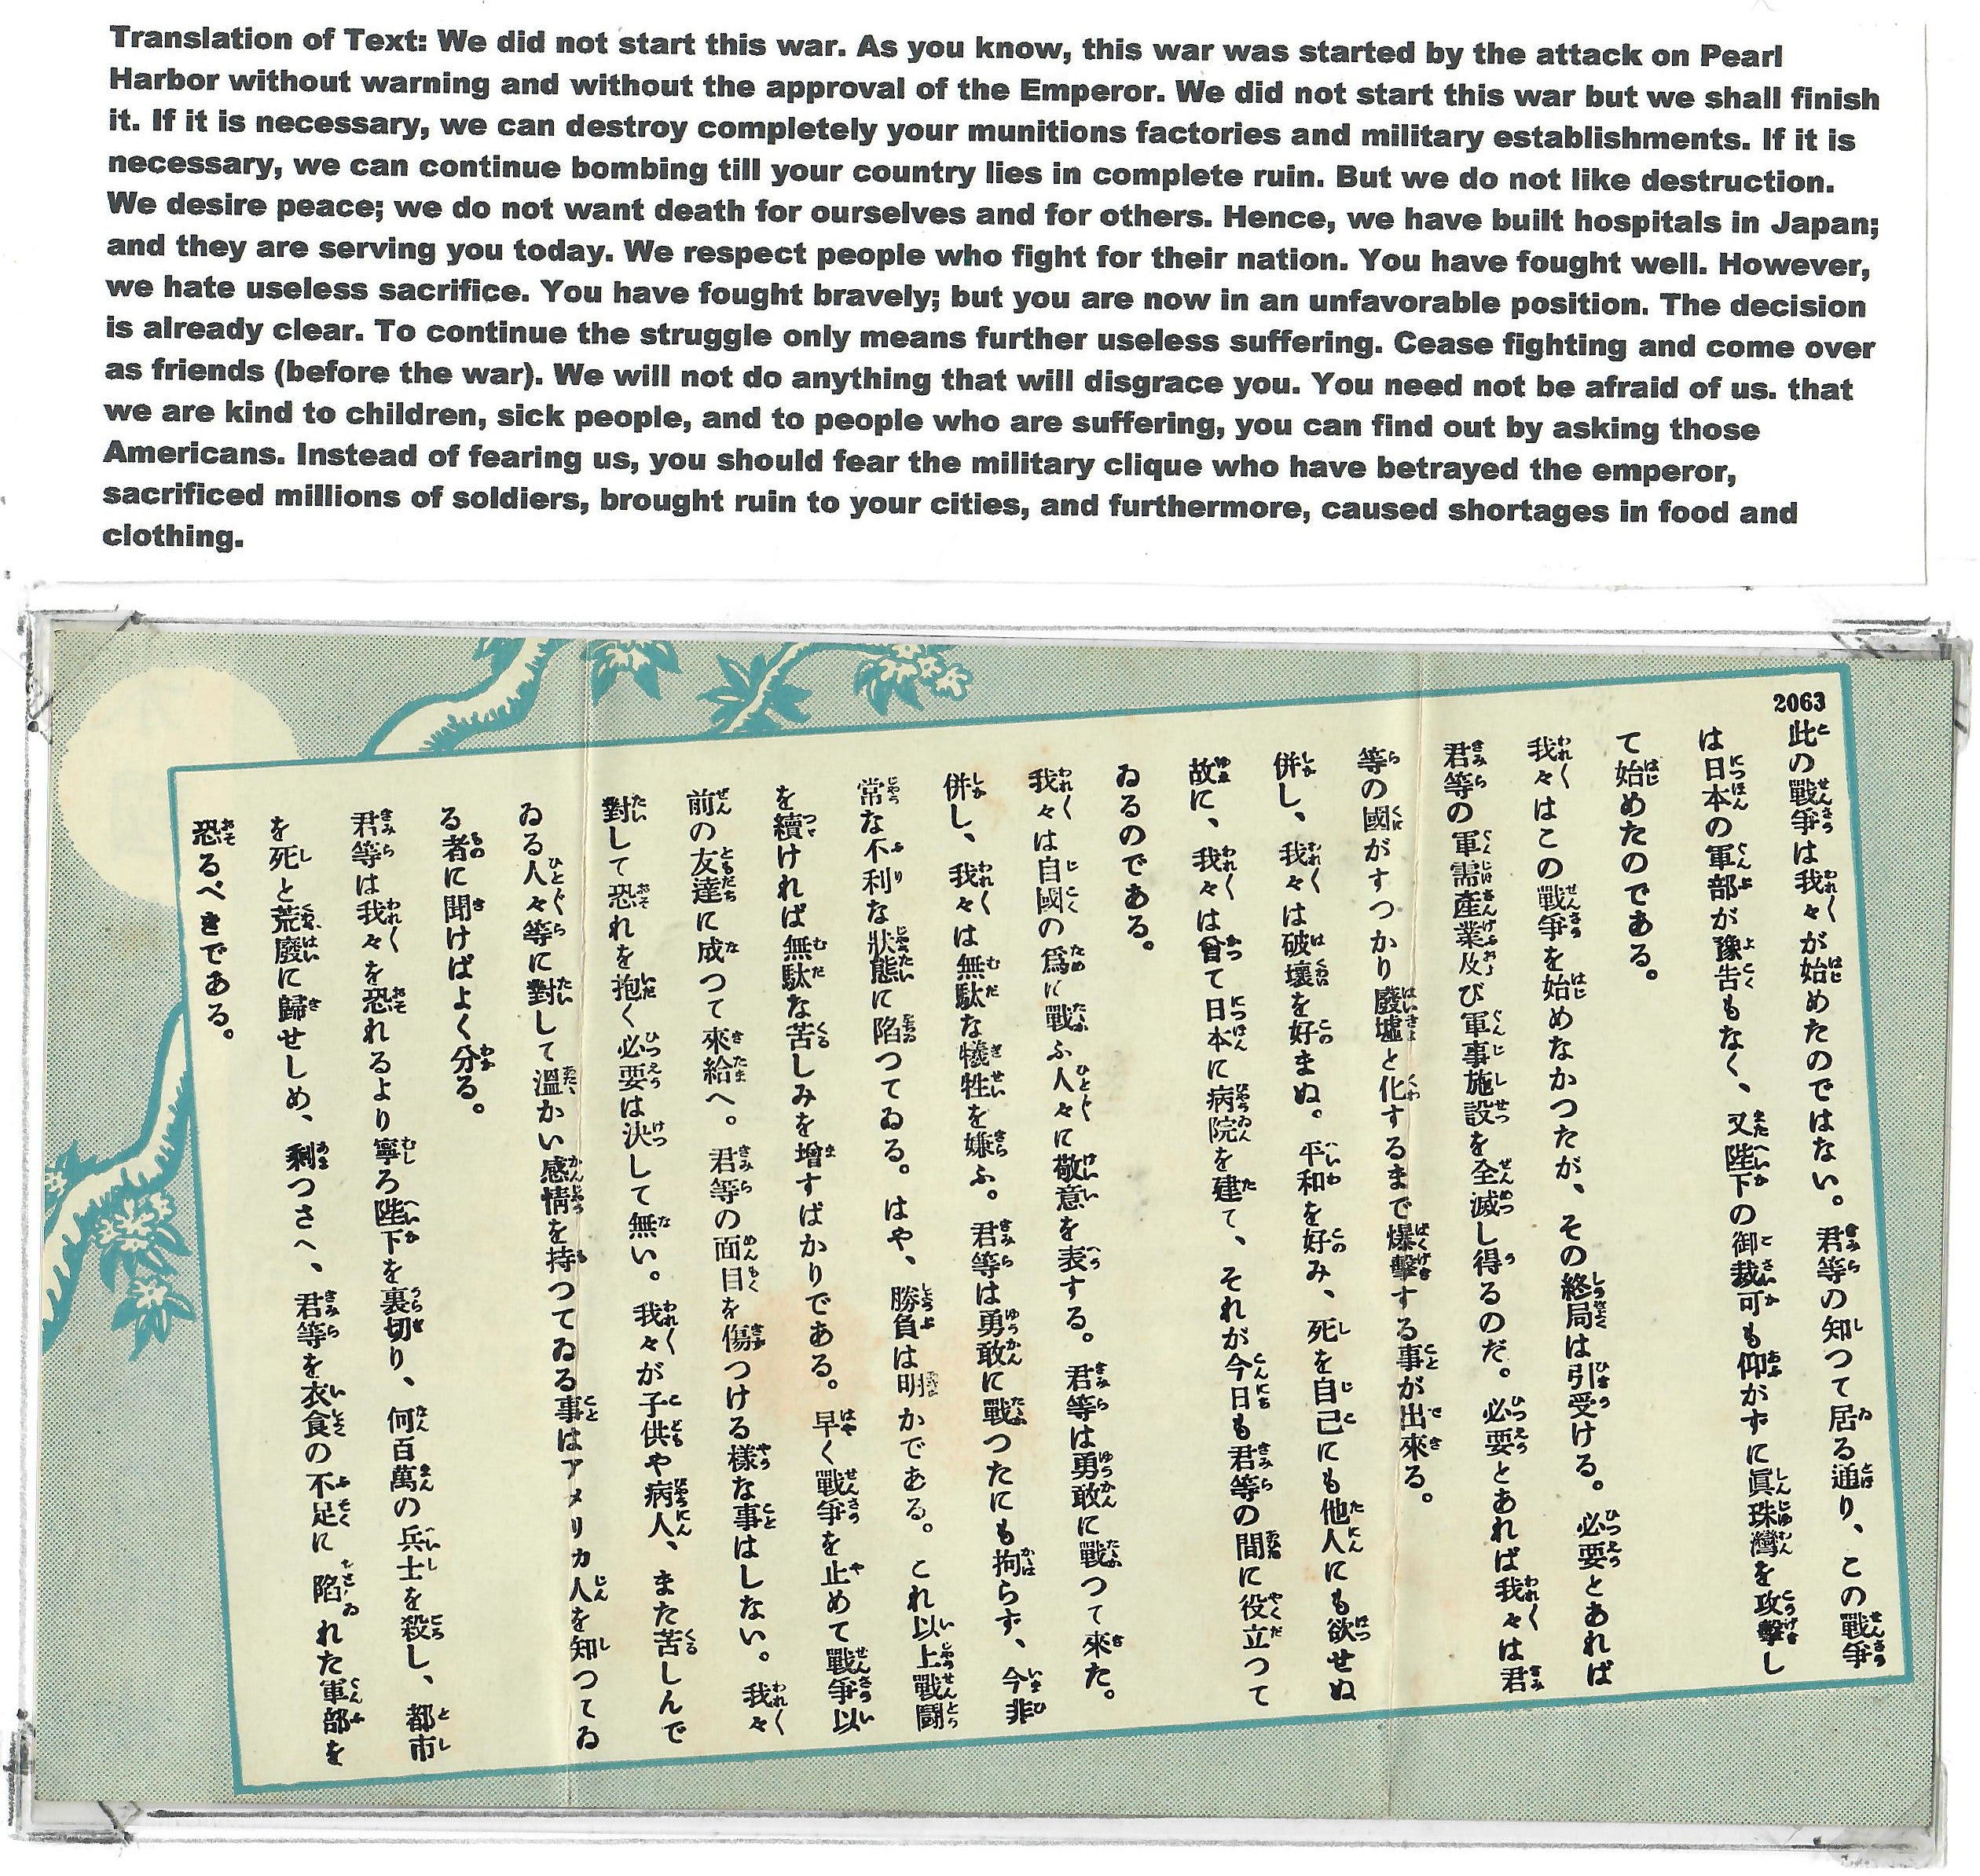 Translation of Text: We did not start this war. As you know, this war was started by the attack on Pearl
Harbor without warning and without the approval of the Emperor. We did not start this war but we shall finish
it. If it is necessary, we can destroy completely your munitions factories and military establishments. If it is
necessary, we can continue bombing till your country lies in complete ruin. But we do not like destruction.
We desire peace; we do not want death for ourselves and for others. Hence, we have built hospitals in Japan;
and they are serving you today. We respect people who fight for their nation. You have fought well. However,
we hate useless sacrifice. You have fought bravely; but you are now in an unfavorable position. The decision
is already clear. To continue the struggle only means further useless suffering. Cease fighting and come over
as friends (before the war). We will not do anything that will disgrace you. You need not be afraid of us. that
we are kind to children, sick people, and to people who are suffering, you can find out by asking those
Americans. Instead of fearing us, you should fear the military clique who have betrayed the emperor,
sacrificed millions of soldiers, brought ruin to your cities, and furthermore, caused shortages in food and
clothing.
2063
此の戰爭は我々が始めたのではない。君等の知つて居る通り、この戰爭
は日本の軍部が豫告もなく、又陛下の御裁可も仰がずに眞珠灣を攻擊し
て始めたのである。
我々はこの戰爭を始めなかつたが、その終局は引受ける。必要とあれば
君等の軍需產業及び軍事施設を全滅し得るのだ。必要とあれば我々は君
等の國がすつかり廢墟と化するまで爆擊する事が出來る。
併し、我々は破壞を好まぬ。平和を好み、死を自己にも他人にも欲せぬ
故に、我々は曾て日本に病院を建て、それが今日も君等の間に役立つて
ゐるのである。
我々は自國の爲に戰ふ人々に敬意を表する。君等は勇敢に戰つて來た。
併し、我々は無駄な犧牲を嫌ふ。君等は勇敢に戰つたにも拘らず、今非
常な不利な狀態に陷つてゐる。はや、勝負は明かである。これ以上戰鬪
を續ければ無駄な苦しみを增すばかりである。早く戰爭を止めて戰爭以
前の友達に成つて來給へ。君等の面目を傷つける樣な事はしない。我々
對して恐れを抱く必要は決して無い。我々が子供や病人、また苦しんで
ゐる人々等に對して溫かい感情を持つてゐる事はアメリカ人を知つてゐ
る者に聞けばよく分る。
君等は我々を恐れるより寧ろ陛下を裏切り、何百萬の兵士を殺し、都市
を死と荒廢に歸せしめ、剩つさへ、君等を衣食の不足に陷れた軍部を
恐るべきである。